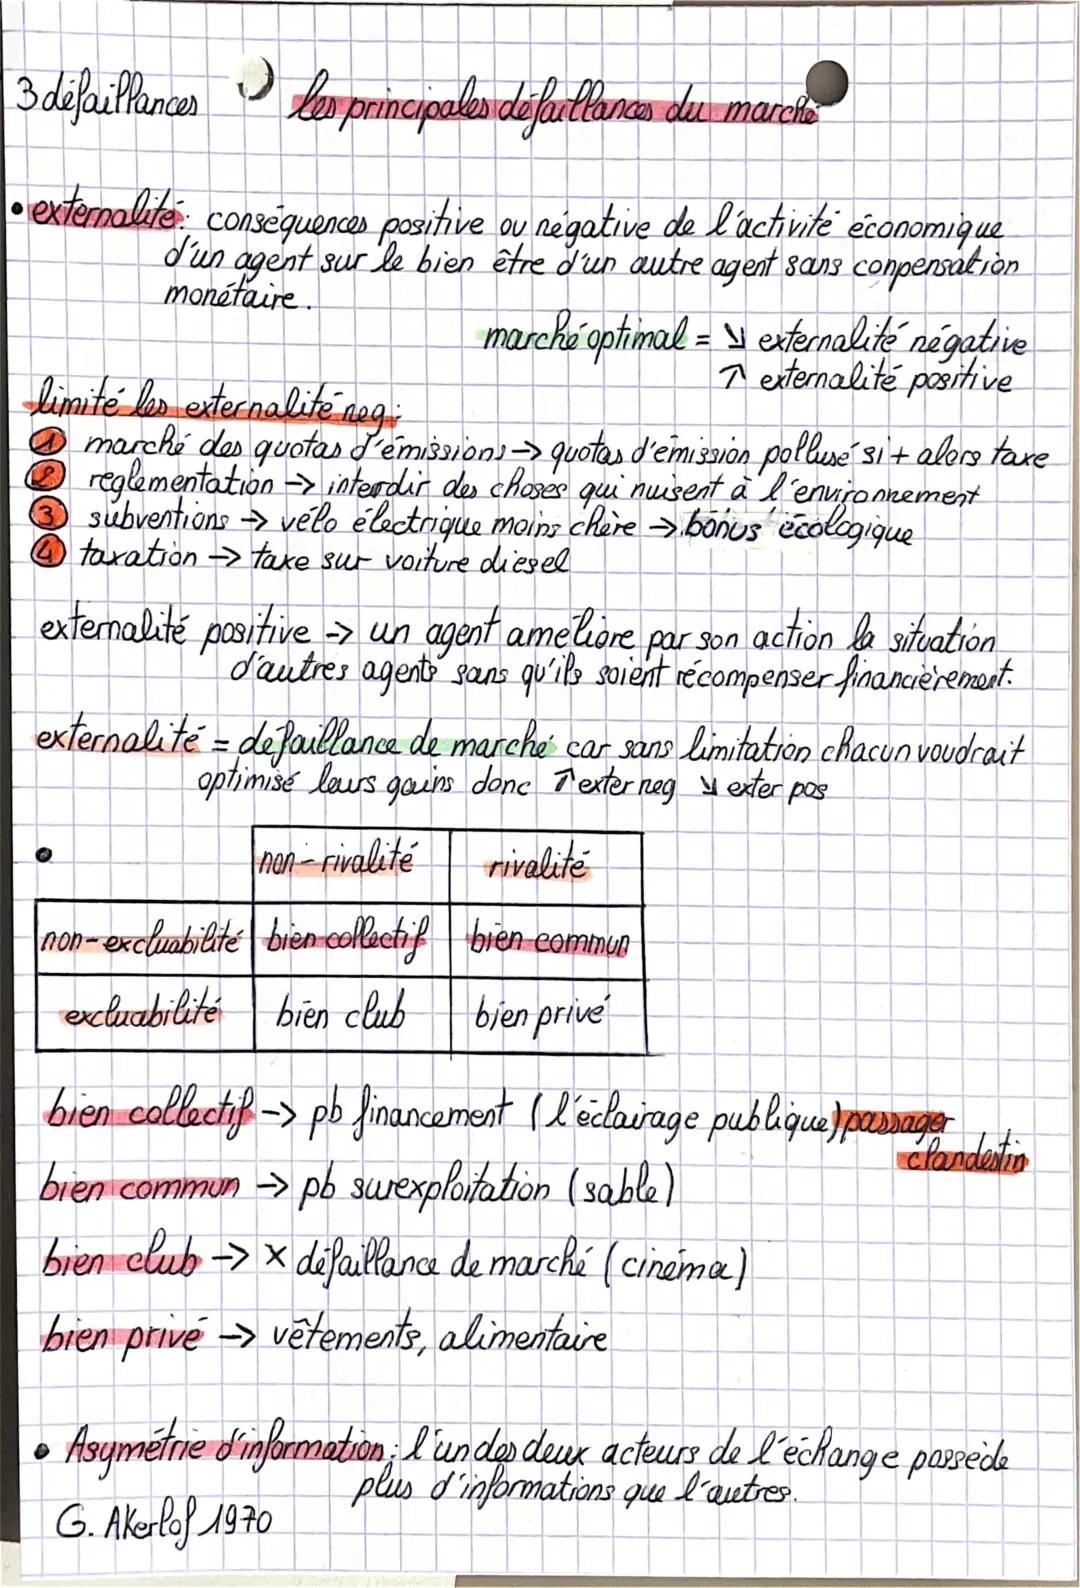 3 défaillances
les principales défaillances du marché
• externalité: conséquences positive ou négative de l'activité économique
d'un agent sur le bien être d'un autre agent sans conpensation
monétaire.
marché optimal = ↘ externalité négative
↗ externalité positive
limité les externalité neg:
① marché des quotas d'émissions → quotas d'émission polluse si + alors taxe
② reglementation → interdir des choses qui nuisent à l'environnement
③ subventions → vélo électrique moins chère → bonus écologique
④ taxation → taxe sur voiture diesel
externalité positive → un agent ameliore par son action la situation
d'autres agents sans qu'ils soient récompenser financièrement.
externalité = défaillance de marché car sans limitation chacun voudrait
optimisé leurs gains donc ↗ exter neg ↘ exter pos
• non-rivalité rivalité
non-excluabilité bien collectif bien commun
excluabilité bien club bien privé
bien collectif → pb financement (l'éclairage publique) passager
clandestin
bien commun → pb surexploitation (sable)
bien club → × défaillance de marché (cinéma)
bien privé → vêtements, alimentaire
• Asymétrie d'information: l'un des deux acteurs de l'échange possède
plus d'informations que l'autres.
G. Akerlof 1970